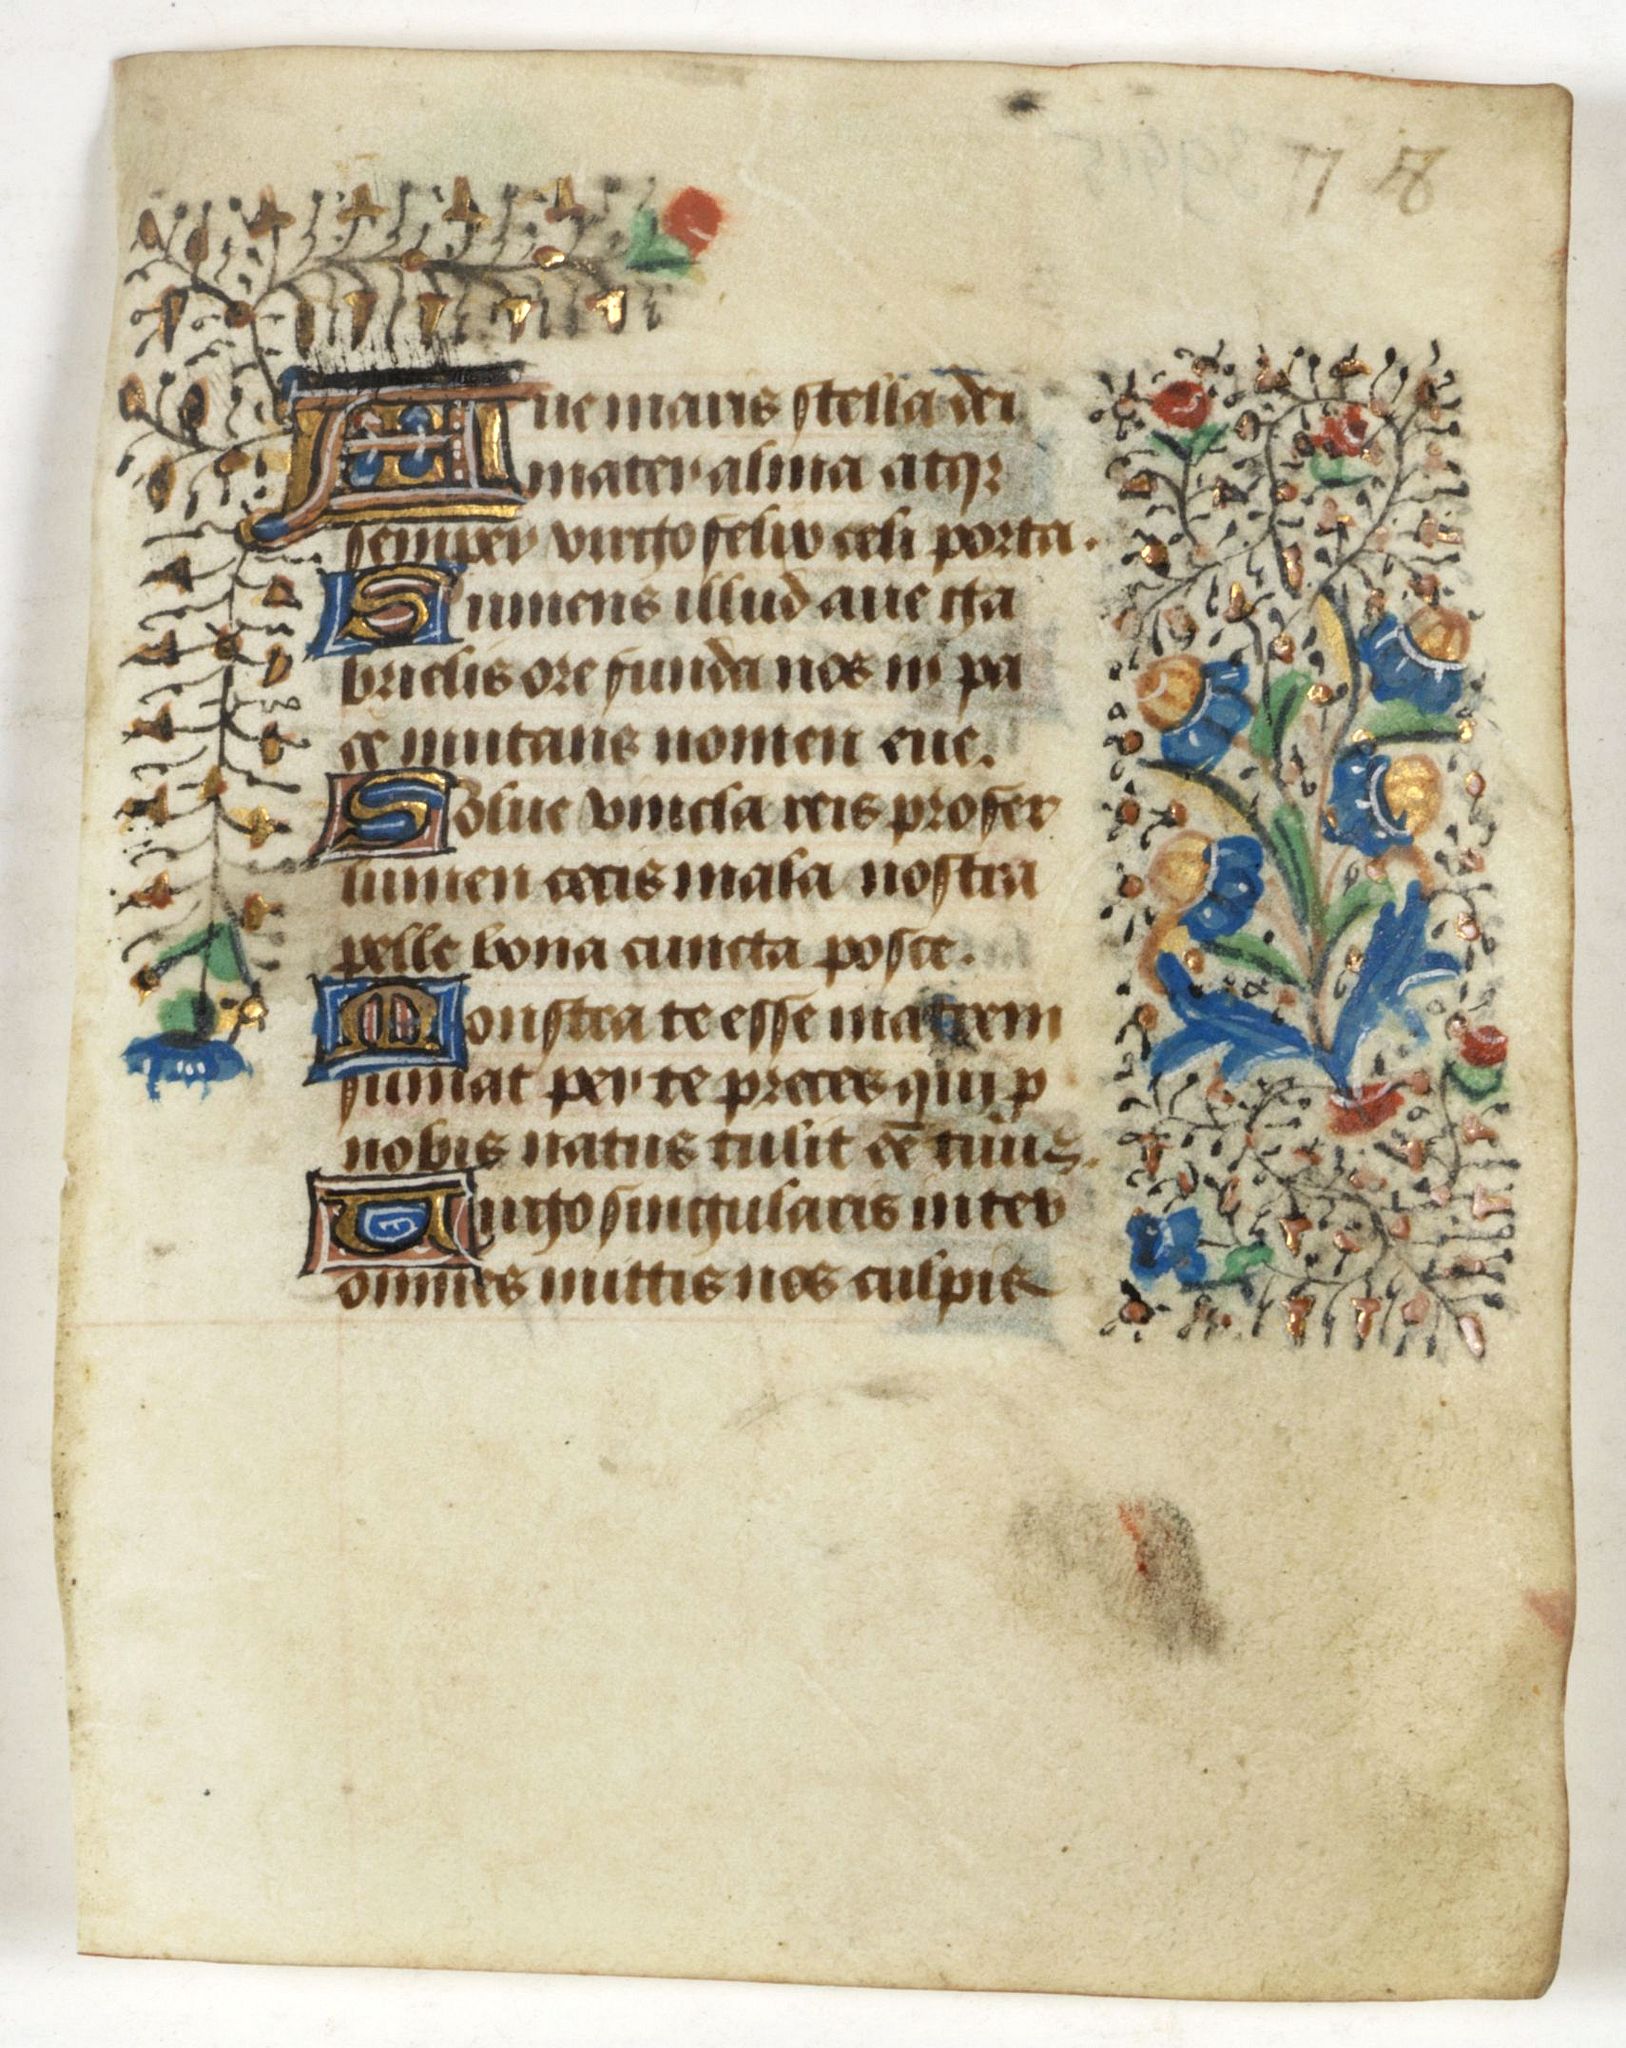 17 18
Aue maris stella dei
mater alma atqz
semper virgo felix celi porta.
Sumens illud aue ga
brielis ore funda nos in pa
ce mutans nomen eue.
Solue vincla reis profer
lumen cecis mala nostra
pelle bona cuncta posce.
Monstra te esse matrem
sumat per te preces qui p
nobis natus tulit eē tuus.
Uirgo singularis inter
omnes mittis nos culpis